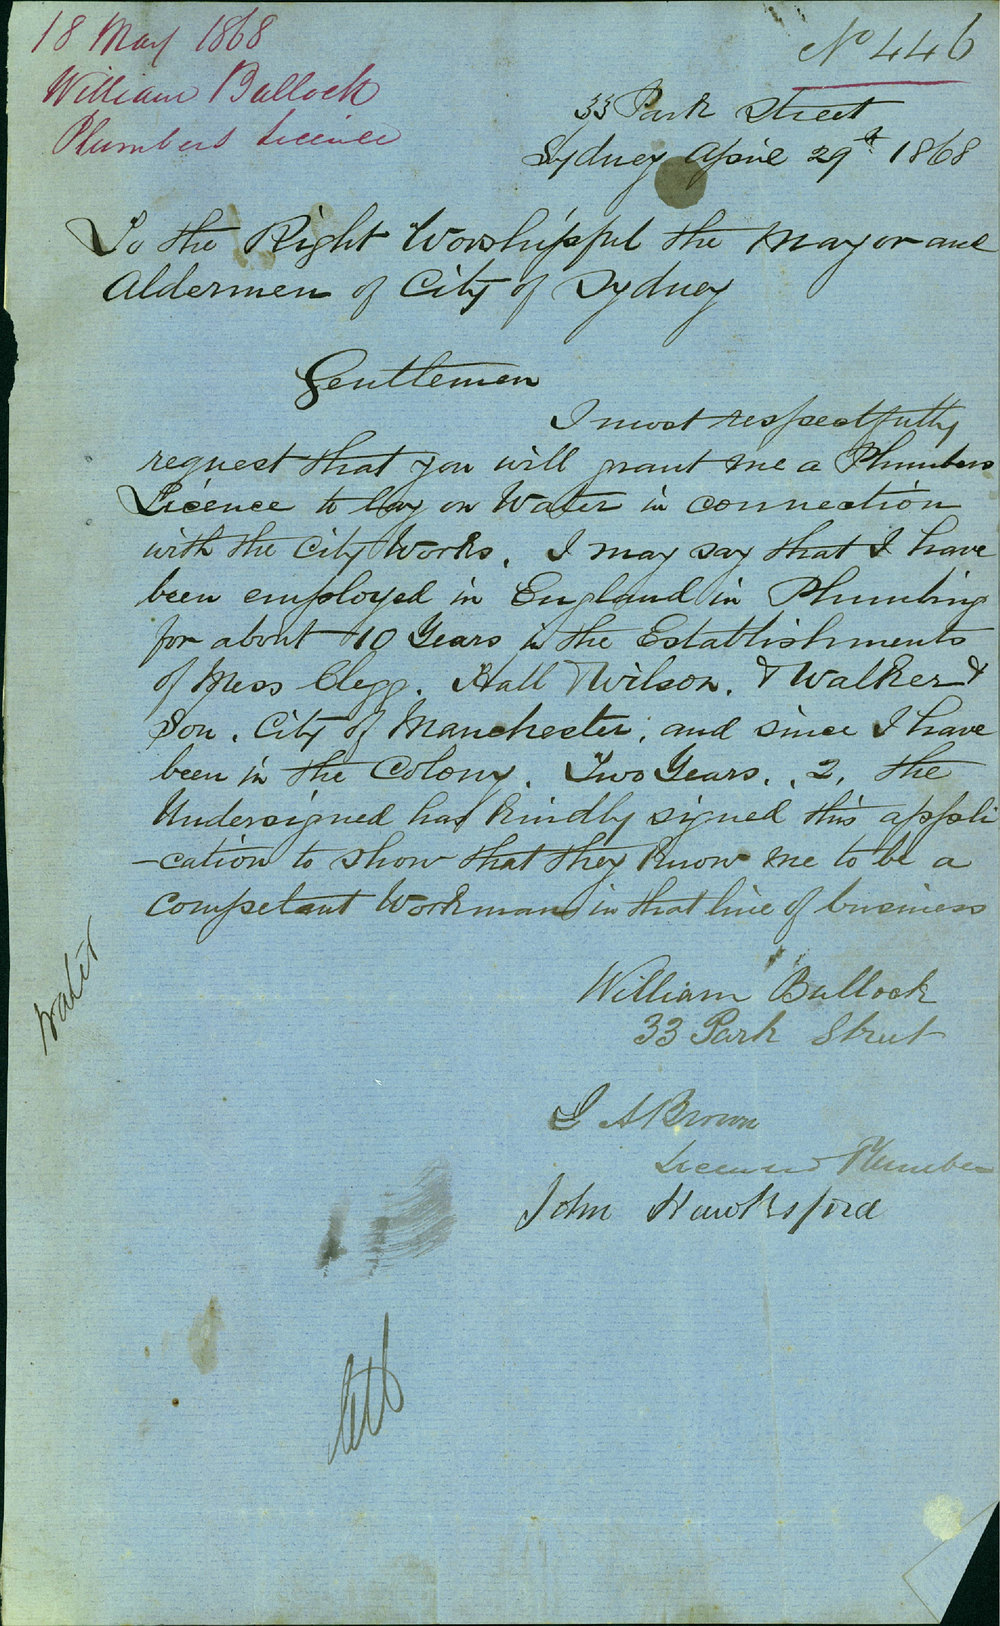 18 May 1868
William Bullock
Plumbers Licence
No 446
33 Park Street
Sydney April 29th 1868
To the Right Worshipful the Mayor and
Aldermen of City of Sydney
Gentlemen
I most respectfully
request that you will grant me a Plumbers
Licence to lay on Water in connection
with the City Works. I may say that I have
been employed in England in Plumbing
for about 10 Years in the Establishments
of Mess Clegg. Hall & Wilson. & Walker &
Son. City of Manchester, and since I have
been in the Colony. Two Years., 2, the
Undersigned has kindly signed this appli
-cation to show that they know me to be a
competant Workman in that line of business
William Bullock
33 Park Street
G A Brown
Licensed Plumber
John Hawksford
Water